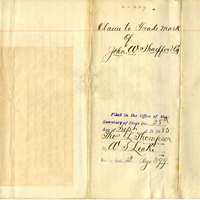 Claim to Trade Mark
of
John W Shaeffer & Co
Filed in the Office of the
Secretary of State the 28th
day of Sept A.D. 1885
Thos L Thompson
W S Leake
2